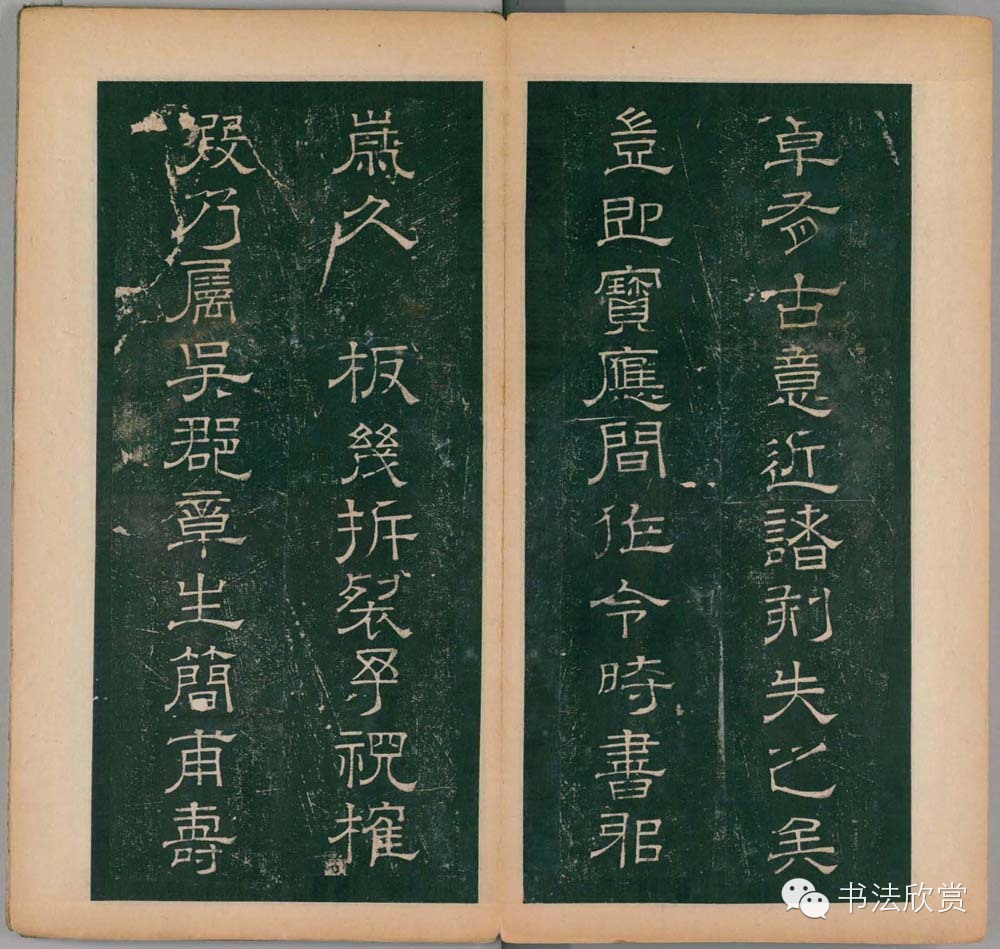 卓有古意近諸刻失之矣
豈即寶應間作令時書耶
歲久 板幾折裂予視摧
毀乃屬吳郡章生簡甫壽
书法欣赏